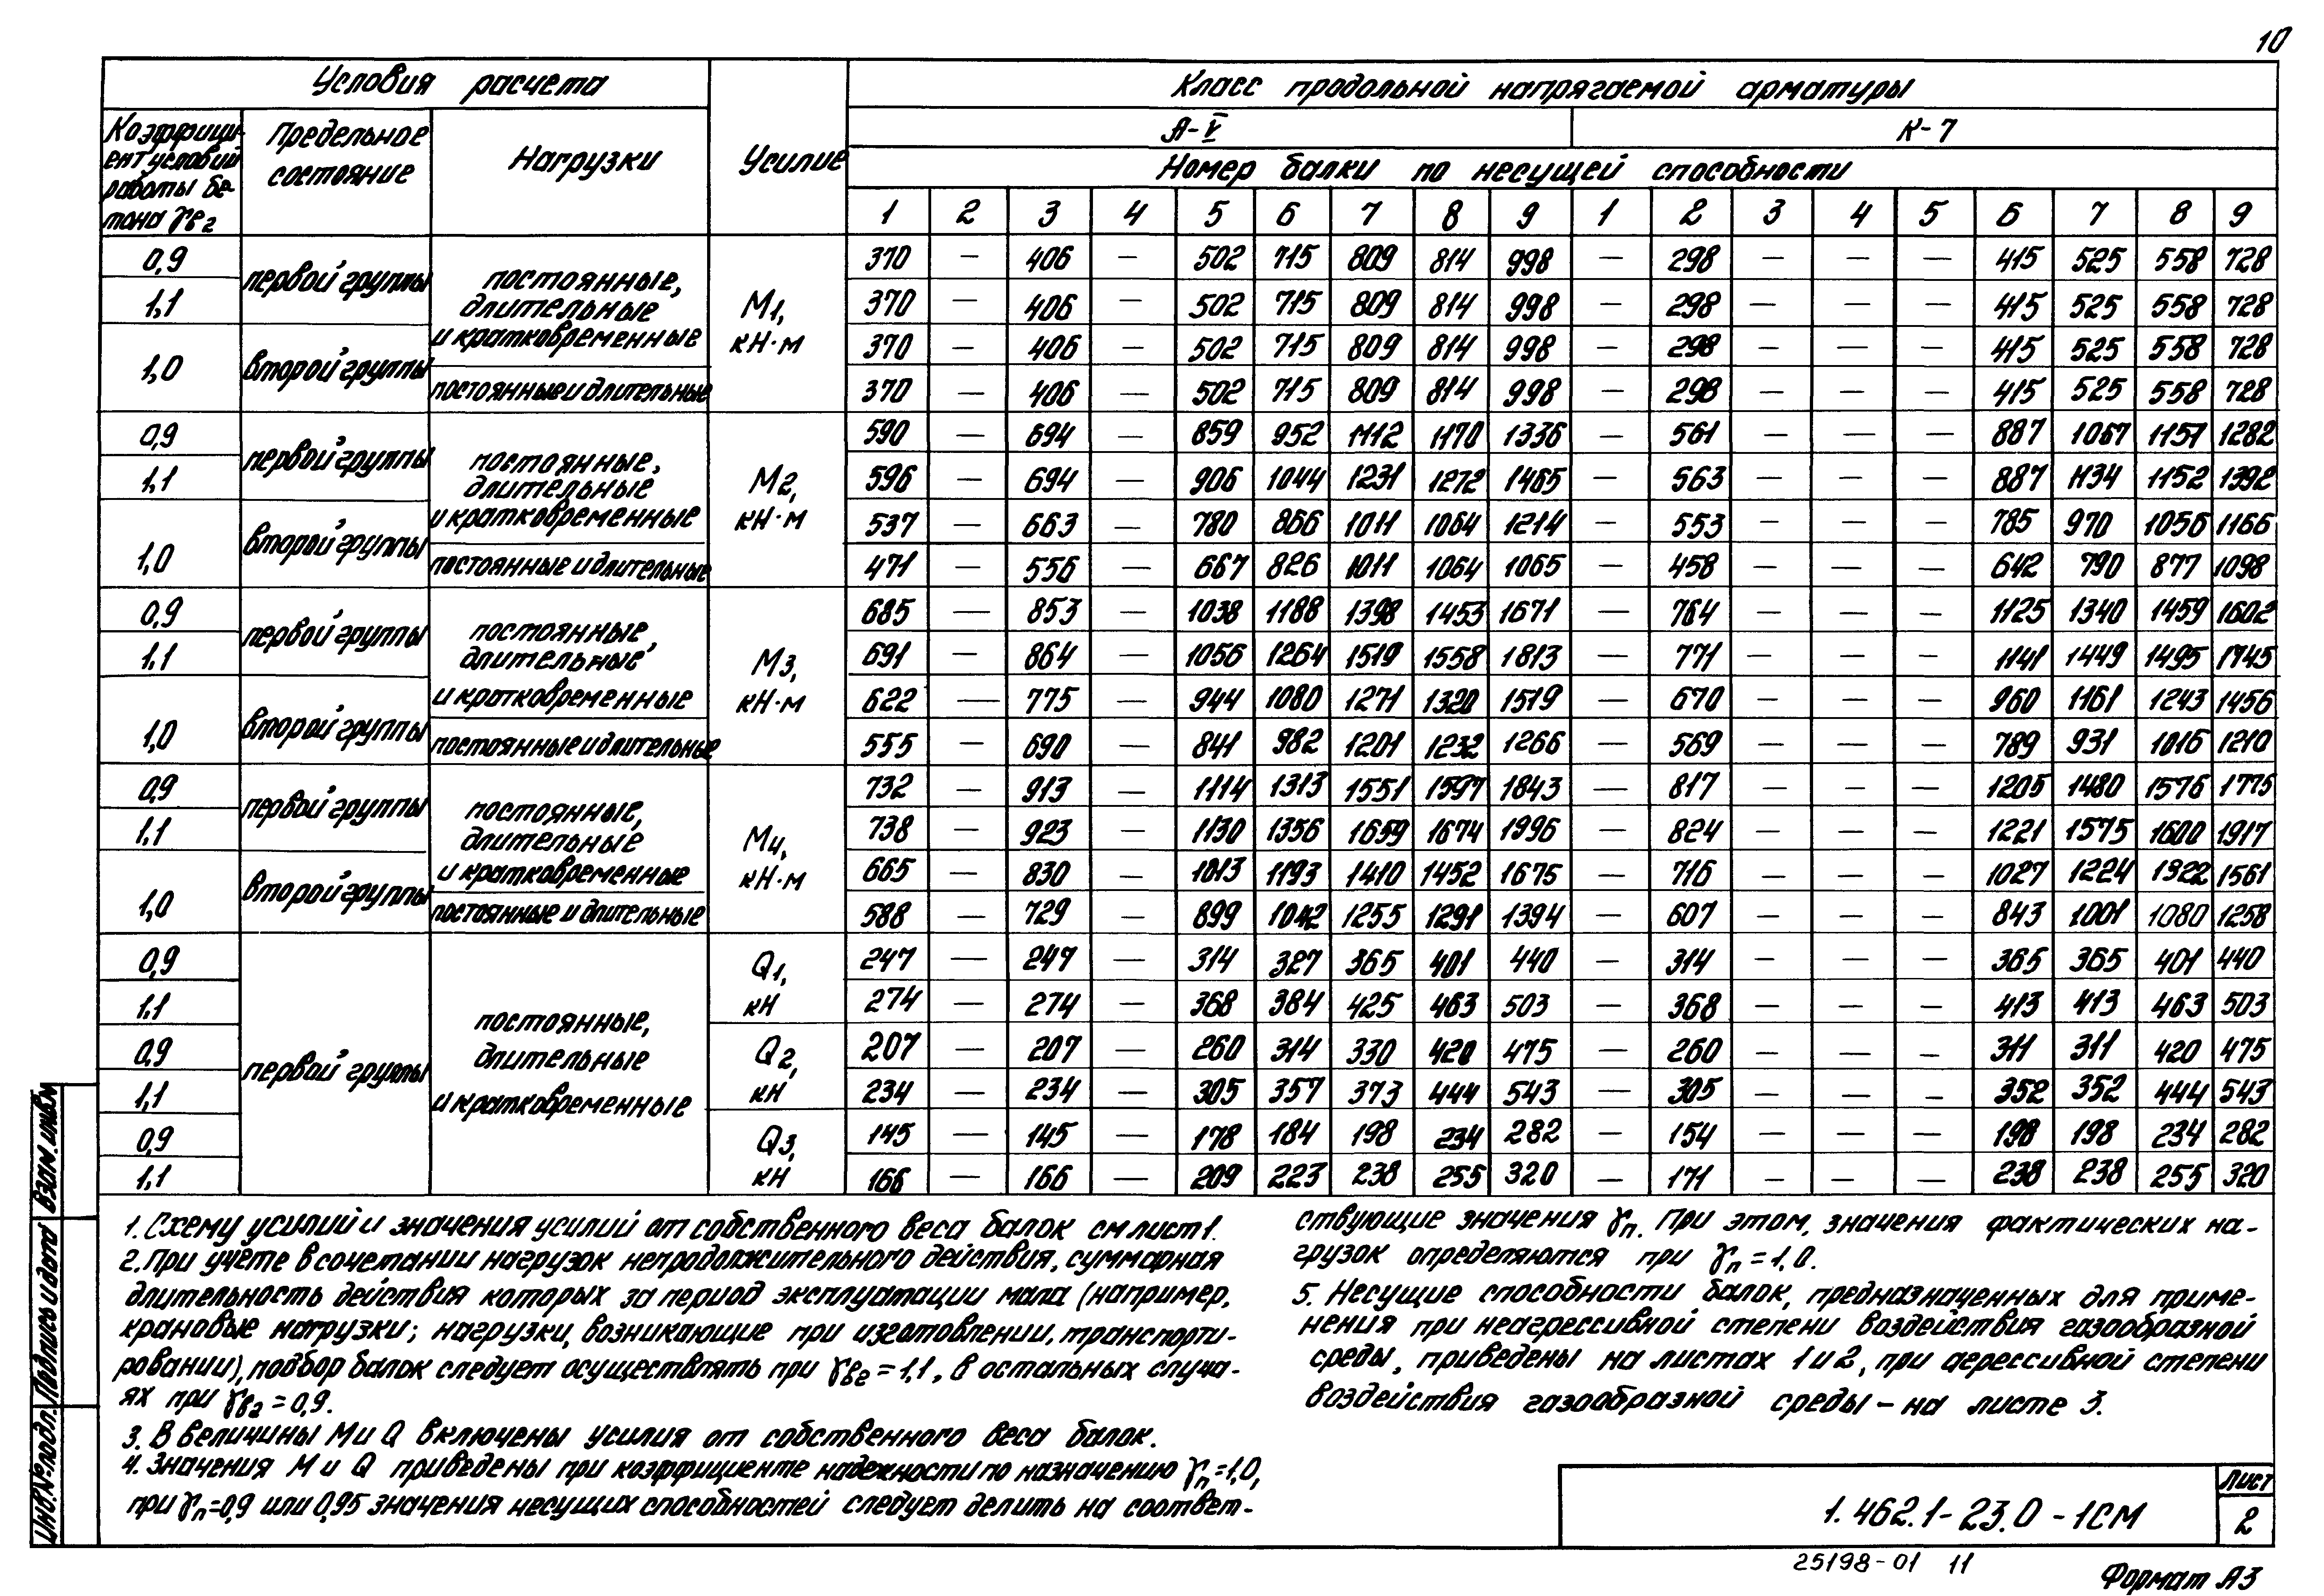 10
Условия расчета
Класс продольной напрягаемой арматуры
Коэффици-
ент условий
работы бе-
тона γв2
Предельное
состояние
Нагрузки
Усилие
А-V К-7
Номер балки по несущей способности
1 2 3 4 5 6 7 8 9 1 2 3 4 5 6 7 8 9
0,9 первой группы постоянные, длительные и кратковременные М1, кН·м 370 — 406 — 502 715 809 814 998 — 298 — — — 415 525 558 728
1,1 370 — 406 — 502 715 809 814 998 — 298 — — — 415 525 558 728
1,0 второй группы 370 — 406 — 502 715 809 814 998 — 298 — — — 415 525 558 728
постоянные и длительные 370 — 406 — 502 715 809 814 998 — 298 — — — 415 525 558 728
0,9 первой группы постоянные, длительные и кратковременные М2, кН·м 590 — 694 — 859 952 1112 1170 1336 — 561 — — — 887 1067 1157 1282
1,1 596 — 694 — 906 1044 1231 1272 1465 — 563 — — — 887 1134 1152 1392
1,0 второй группы 537 — 663 — 780 866 1011 1064 1214 — 553 — — — 785 970 1056 1166
постоянные и длительные 471 — 556 — 667 826 1011 1064 1065 — 458 — — — 642 790 877 1098
0,9 первой группы постоянные, длительные и кратковременные М3, кН·м 685 — 853 — 1038 1188 1398 1453 1671 — 764 — — — 1125 1340 1459 1602
1,1 691 — 864 — 1056 1264 1519 1558 1813 — 771 — — — 1141 1449 1495 1745
1,0 второй группы 622 — 775 — 944 1080 1271 1320 1519 — 670 — — — 960 1161 1243 1456
постоянные и длительные 555 — 690 — 841 982 1201 1232 1266 — 569 — — — 789 931 1016 1210
0,9 первой группы постоянные, длительные и кратковременные М4, кН·м 732 — 913 — 1114 1313 1551 1597 1843 — 817 — — — 1205 1480 1576 1775
1,1 738 — 923 — 1130 1356 1659 1674 1996 — 824 — — — 1221 1575 1600 1917
1,0 второй группы 665 — 830 — 1013 1193 1410 1452 1675 — 716 — — — 1027 1224 1322 1561
постоянные и длительные 588 — 729 — 899 1042 1255 1291 1394 — 607 — — — 843 1001 1080 1258
0,9 первой группы постоянные, длительные и кратковременные Q1, кН 247 — 247 — 314 327 365 401 440 — 314 — — — 365 365 401 440
1,1 274 — 274 — 368 384 425 463 503 — 368 — — — 413 413 463 503
0,9 Q2, кН 207 — 207 — 260 314 330 420 475 — 260 — — — 311 311 420 475
1,1 234 — 234 — 305 357 373 444 543 — 305 — — — 352 352 444 543
0,9 Q3, кН 145 — 145 — 178 184 198 234 282 — 154 — — — 198 198 234 282
1,1 166 — 166 — 209 223 238 255 320 — 171 — — — 238 238 255 320
1. Схему усилий и значения усилий от собственного веса балок см лист 1.
2. При учете в сочетании нагрузок непродолжительного действия, суммарная
длительность действия которых за период эксплуатации мала (например,
крановые нагрузки; нагрузки, возникающие при изготовлении, транспорти-
ровании), подбор балок следует осуществлять при γв2 = 1,1, в остальных случа-
ях при γв2 = 0,9.
3. В величины М и Q включены усилия от собственного веса балок.
4. Значения М и Q приведены при коэффициенте надежности по назначению γп=1,0,
при γп=0,9 или 0,95 значения несущих способностей следует делить на соответ-
ствующие значения γп. При этом, значения фактических на-
грузок определяются при γп = 1,0.
5. Несущие способности балок, предназначенных для приме-
нения при неагрессивной степени воздействия газообразной
среды, приведены на листах 1 и 2, при агрессивной степени
воздействия газообразной среды – на листе 3.
Инв.№ подл. Подпись и дата Взам. инв.№
1.462.1-23.0-1СМ
Лист
2
25198-01 11
Формат А3